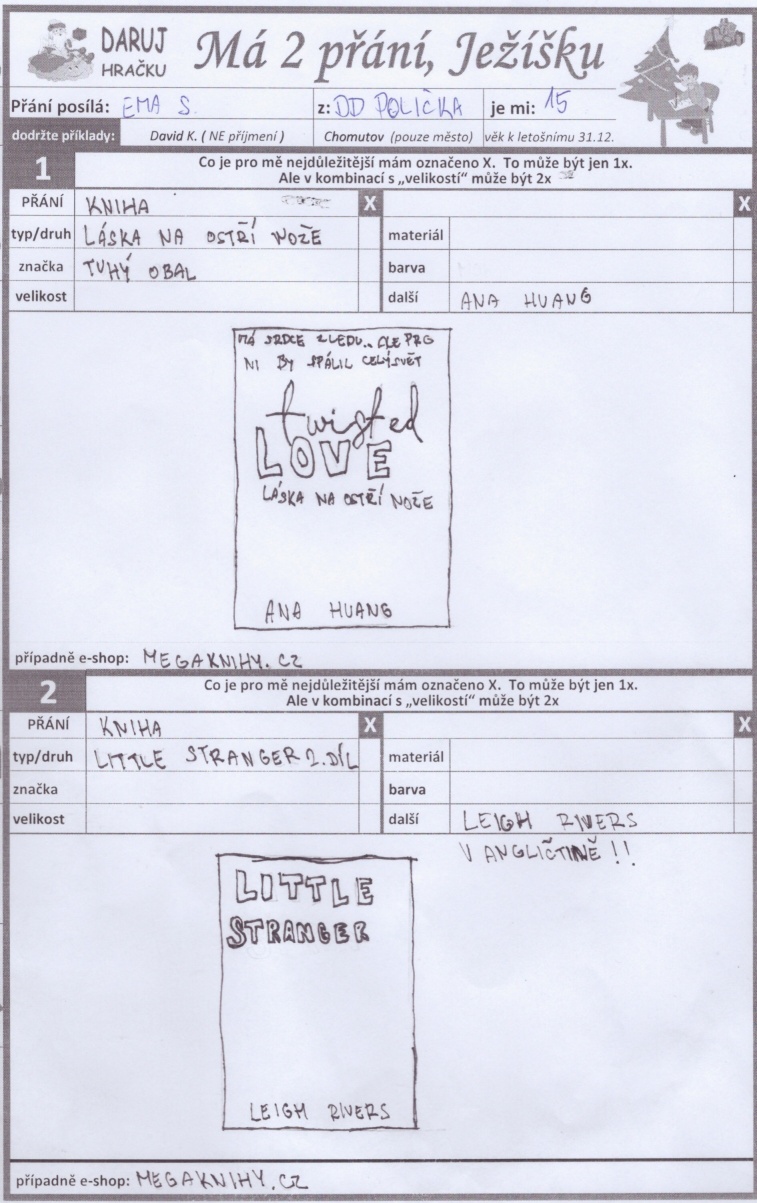 DARUJ
HRAČKU
Má 2 přání, Ježíšku
Přání posílá: EMA S. z: DD POLIČKA je mi: 15
dodržte příklady: David K. ( NE příjmení ) Chomutov (pouze město) věk k letošnímu 31.12.
1 Co je pro mě nejdůležitější mám označeno X. To může být jen 1x.
Ale v kombinací s „velikostí" může být 2x
PŘÁNÍ KNIHA X X
typ/druh LÁSKA NA OSTŘÍ NOŽE materiál
značka TUHÝ OBAL barva
velikost další ANA HUANG
MÁ SRDCE Z LEDU.. ALE PRO
NI BY SPÁLIL CELÝ SVĚT
twisted
LOVE
LÁSKA NA OSTŘÍ NOŽE
ANA HUANG
případně e-shop: MEGAKNIHY.CZ
2 Co je pro mě nejdůležitější mám označeno X. To může být jen 1x.
Ale v kombinací s „velikostí" může být 2x
PŘÁNÍ KNIHA X X
typ/druh LITTLE STRANGER 2. DÍL materiál
značka barva
velikost další LEIGH RIVERS
V ANGLIČTINĚ !!
LITTLE
STRANGER
LEIGH RIVERS
případně e-shop: MEGAKNIHY.CZ